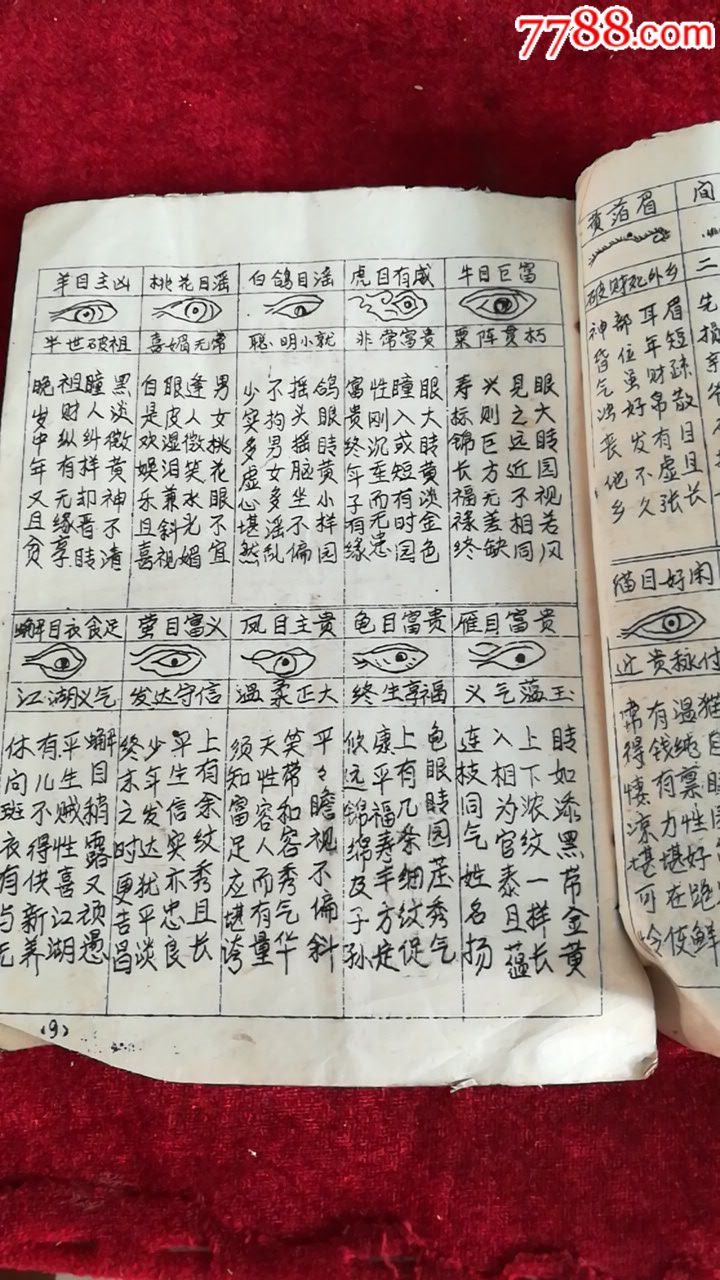 7788.com
黄落眉
破财死外乡
眉短疏散目且长
耳年财帛有虚张
部位虽好发不久
神昏气浊丧他乡
间
二
猫目好闲
牛目巨富
粟阵贯朽
眼大睛园视若风
见之远近不相同
兴则巨方无差缺
寿标锦长福禄终
虎目有威
非常富贵
眼大睛黄淡金色
瞳入或短有时园
性刚沉重而无患
富贵终年子有缘
白鸽目谣
聪明小就
鸽眼睛黄小样园
摇头摇脑坐不偏
不拘男女多谣乱
少实多虚心堪然
桃花目谣
喜媚无常
男女桃花眼不宜
逢人微笑水光媚
眼皮湿泪兼斜视
白是欢娱乐且喜
羊目主凶
半世破祖
黑淡微黄神不清
瞳人纠样却晋睛
祖财纵有无缘享
晚岁中年又且贫
雁目富贵
义气蕴玉
睛如漆黑带金黄
上下浓纹一样长
入相为官泰且蕴
连枝同气姓名扬
龟目富贵
终生享福
龟眼睛园茋秀气
上有几条细纹促
康平福寿丰方定
悠远锦绵及子孙
凤目主贵
温柔正大
平々瞻视不偏斜
笑带和容秀气华
天性容人而有量
须知富足应堪誇
萤目富义
发达守信
上有余纹秀且长
平生信实亦忠良
少年发达犹平淡
终末之时更吉昌
蠏目衣食足
江湖义气
蠏目稍露又顽愚
平生贼性喜江湖
有儿不得供新养
休问斑衣有与无
(9)